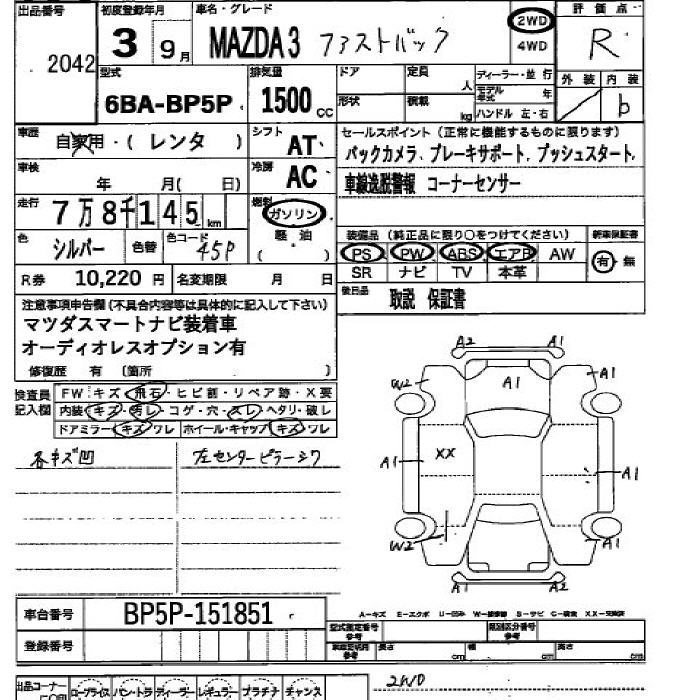 出品番号 初度登録年月 車名・グレード 評価点
2042 3 9月 MAZDA3 ファストバック 2WD 4WD R
型式 排気量 ドア 定員 人 ディーラー・並行 外装 内装
6BA-BP5P 1500cc 形状 積載 kg モデル年式 年 ハンドル 左・右 b
車歴 自家用・(レンタ) シフト AT セールスポイント(正常に機能するものに限ります)
車検 年 月( 日) 冷房 AC バックカメラ、ブレーキサポート、プッシュスタート、
車線逸脱警報 コーナーセンサー
走行 7万8千145km 燃料 ガソリン 軽・油 ( )
色 シルバー 色替 色コード 45P 装備品(純正品に限り○をつけてください) 新車保証書
PS PW ABS エアB AW 有・無
SR ナビ TV 本革
R券 10,220円 名変期限 月 日 後日品 取説 保証書
注意事項申告欄(不具合内容等は具体的に記入して下さい)
マツダスマートナビ装着車
オーディオレスオプション有
修復歴 有(箇所
検査員記入欄 FW キズ・飛石・ヒビ割・リペア跡・X要
内装 キズ・汚レ・コゲ・穴・スレ・ヘタリ・破レ
ドアミラー キズ・ワレ ホイール・キャップ キズ・ワレ
各キズ凹 左センターピラーシワ
A2 A1
W2 A1 A1
A1 XX A1
W2 A1
A1 A2
車台番号 BP5P-151851
A-キズ E-エクボ U-凹み W-補修跡 S-サビ C-腐食 XX-交換済
登録番号 型式指定番号 参考 類別区分番号 参考
長さ cm 幅 cm 高さ cm
出品コーナー ロープライス バン・トラ ディーラー レギュラー プラチナ チャンス
2WD